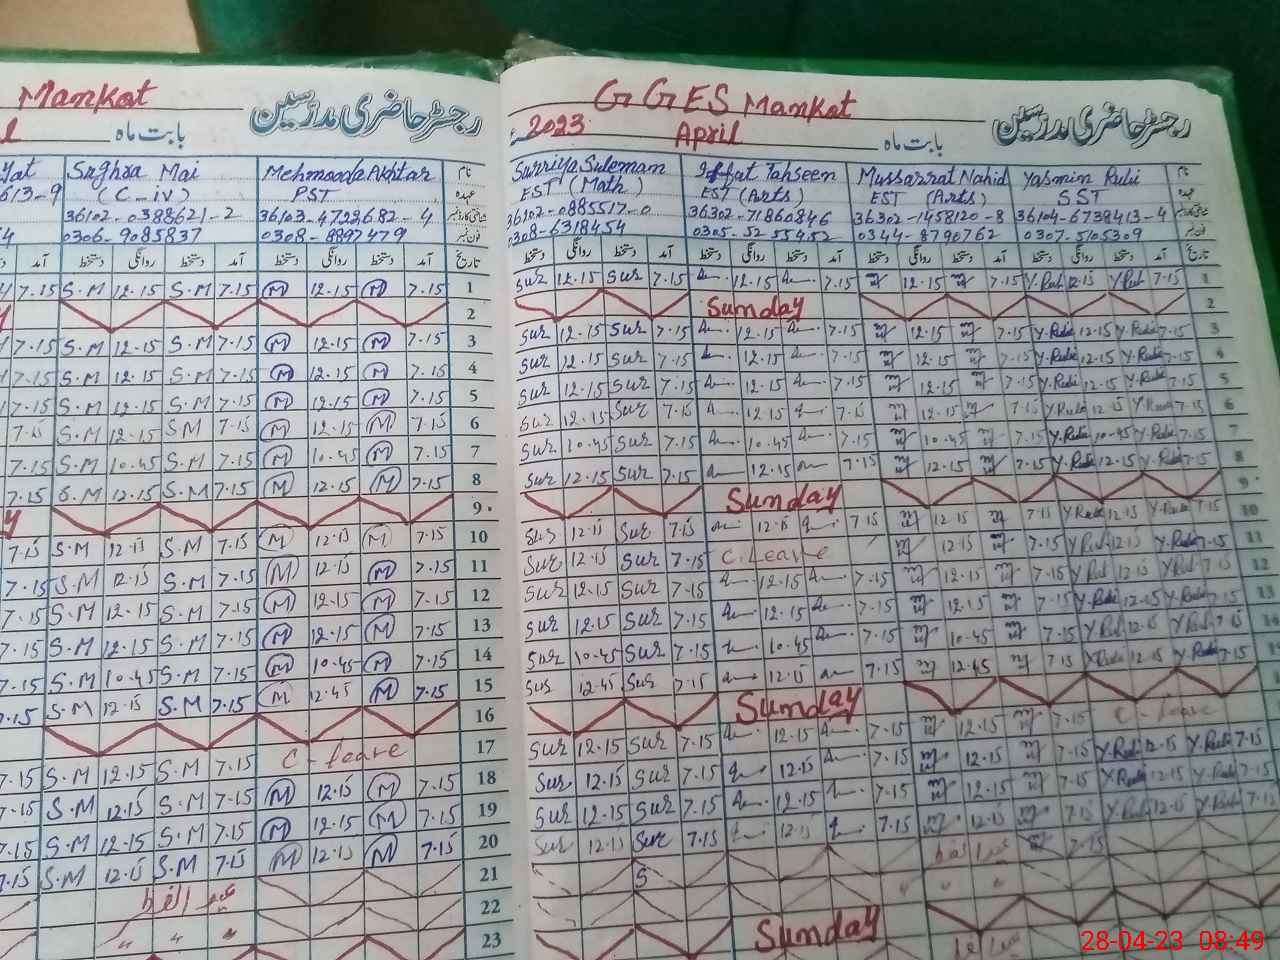 Mankat
رجسٹر حاضری مدرسین
بابت ماہ
Sughra Mai Mehmooda Akhtar نام
(C-iv) PST عہدہ
613-9 36102-0388621-2 36103-4722682-4
0306-9085837 0308-8897479
دستخط روانگی دستخط آمد دستخط روانگی دستخط آمد تاریخ
7.15 S.M 12.15 S.M 7.15 M 12.15 M 7.15 1
2
7.15 S.M 12.15 S.M 7.15 M 12.15 M 7.15 3
7.15 S.M 12.15 S.M 7.15 M 12.15 M 7.15 4
7.15 S.M 12.15 S.M 7.15 M 12.15 M 7.15 5
7.15 S.M 12.15 S.M 7.15 M 12.15 M 7.15 6
7.15 S.M 10.45 S.M 7.15 M 10.45 M 7.15 7
7.15 S.M 12.15 S.M 7.15 M 12.15 M 7.15 8
9
7.15 S.M 12.15 S.M 7.15 M 12.15 M 7.15 10
7.15 S.M 12.15 S.M 7.15 M 12.15 M 7.15 11
7.15 S.M 12.15 S.M 7.15 M 12.15 M 7.15 12
7.15 S.M 12.15 S.M 7.15 M 12.15 M 7.15 13
7.15 S.M 10.45 S.M 7.15 M 10.45 M 7.15 14
7.15 S.M 12.15 S.M 7.15 M 12.45 M 7.15 15
16
7.15 S.M 12.15 S.M 7.15 C-leave 17
7.15 S.M 12.15 S.M 7.15 M 12.15 M 7.15 18
7.15 S.M 12.15 S.M 7.15 M 12.15 M 7.15 19
7.15 S.M 12.15 S.M 7.15 M 12.15 M 7.15 20
عید الفطر 21
" " " 22
23
G GES Mankat
رجسٹر حاضری مدرسین
2023 April بابت ماہ
Surriya Suleman Iffat Tahseen Mussarrat Nahid Yasmin Rubi نام
EST (Math) EST (Arts) EST (Arts) SST عہدہ
36302-0885517-0 36302-71860846 36302-1458120-8 36104-6738413-4
0308-6318454 0305-5255452 0344-8790762 0307-5105309
دستخط روانگی دستخط آمد دستخط روانگی دستخط آمد دستخط روانگی دستخط آمد دستخط روانگی دستخط آمد تاریخ
Sur 12.15 Sur 7.15 12.15 7.15 12.15 7.15 Y.Rubi 12.15 Y.Rubi 7.15 1
Sunday 2
Sur 12.15 Sur 7.15 12.15 7.15 12.15 7.15 Y.Rubi 12.15 Y.Rubi 7.15 3
Sur 12.15 Sur 7.15 12.15 7.15 12.15 7.15 Y.Rubi 12.15 Y.Rubi 7.15 4
Sur 12.15 Sur 7.15 12.15 7.15 12.15 7.15 Y.Rubi 12.15 Y.Rubi 7.15 5
Sur 12.15 Sur 7.15 12.15 7.15 12.15 7.15 Y.Rubi 12.15 Y.Rubi 7.15 6
Sur 10.45 Sur 7.15 10.45 7.15 10.45 7.15 Y.Rubi 10.45 Y.Rubi 7.15 7
Sur 12.15 Sur 7.15 12.15 7.15 12.15 7.15 Y.Rubi 12.15 Y.Rubi 7.15 8
Sunday 9
Sur 12.15 Sur 7.15 12.15 7.15 12.15 7.15 Y.Rubi 12.15 Y.Rubi 7.15 10
Sur 12.15 Sur 7.15 C.Leave 12.15 7.15 Y.Rubi 12.15 Y.Rubi 7.15 11
Sur 12.15 Sur 7.15 12.15 7.15 12.15 7.15 Y.Rubi 12.15 Y.Rubi 7.15 12
Sur 12.15 Sur 7.15 12.15 7.15 12.15 7.15 Y.Rubi 12.15 Y.Rubi 7.15 13
Sur 10.45 Sur 7.15 10.45 7.15 10.45 7.15 Y.Rubi 12.15 Y.Rubi 7.15 14
Sur 12.45 Sur 7.15 12.15 7.15 12.45 7.15 Y.Rubi 12.15 Y.Rubi 7.15
Sunday
Sur 12.15 Sur 7.15 12.15 7.15 12.15 7.15 C-leave
Sur 12.15 Sur 7.15 12.15 7.15 12.15 7.15 Y.Rubi 12.15 Y.Rubi 7.15
Sur 12.15 Sur 7.15 12.15 7.15 12.15 7.15 Y.Rubi 12.15 Y.Rubi 7.15
Sur 12.15 Sur 7.15 12.15 7.15 12.15 7.15 Y.Rubi 12.15 Y.Rubi 7.15
S عید الفطر 7.15
" " "
Sunday
28-04-23 08:49